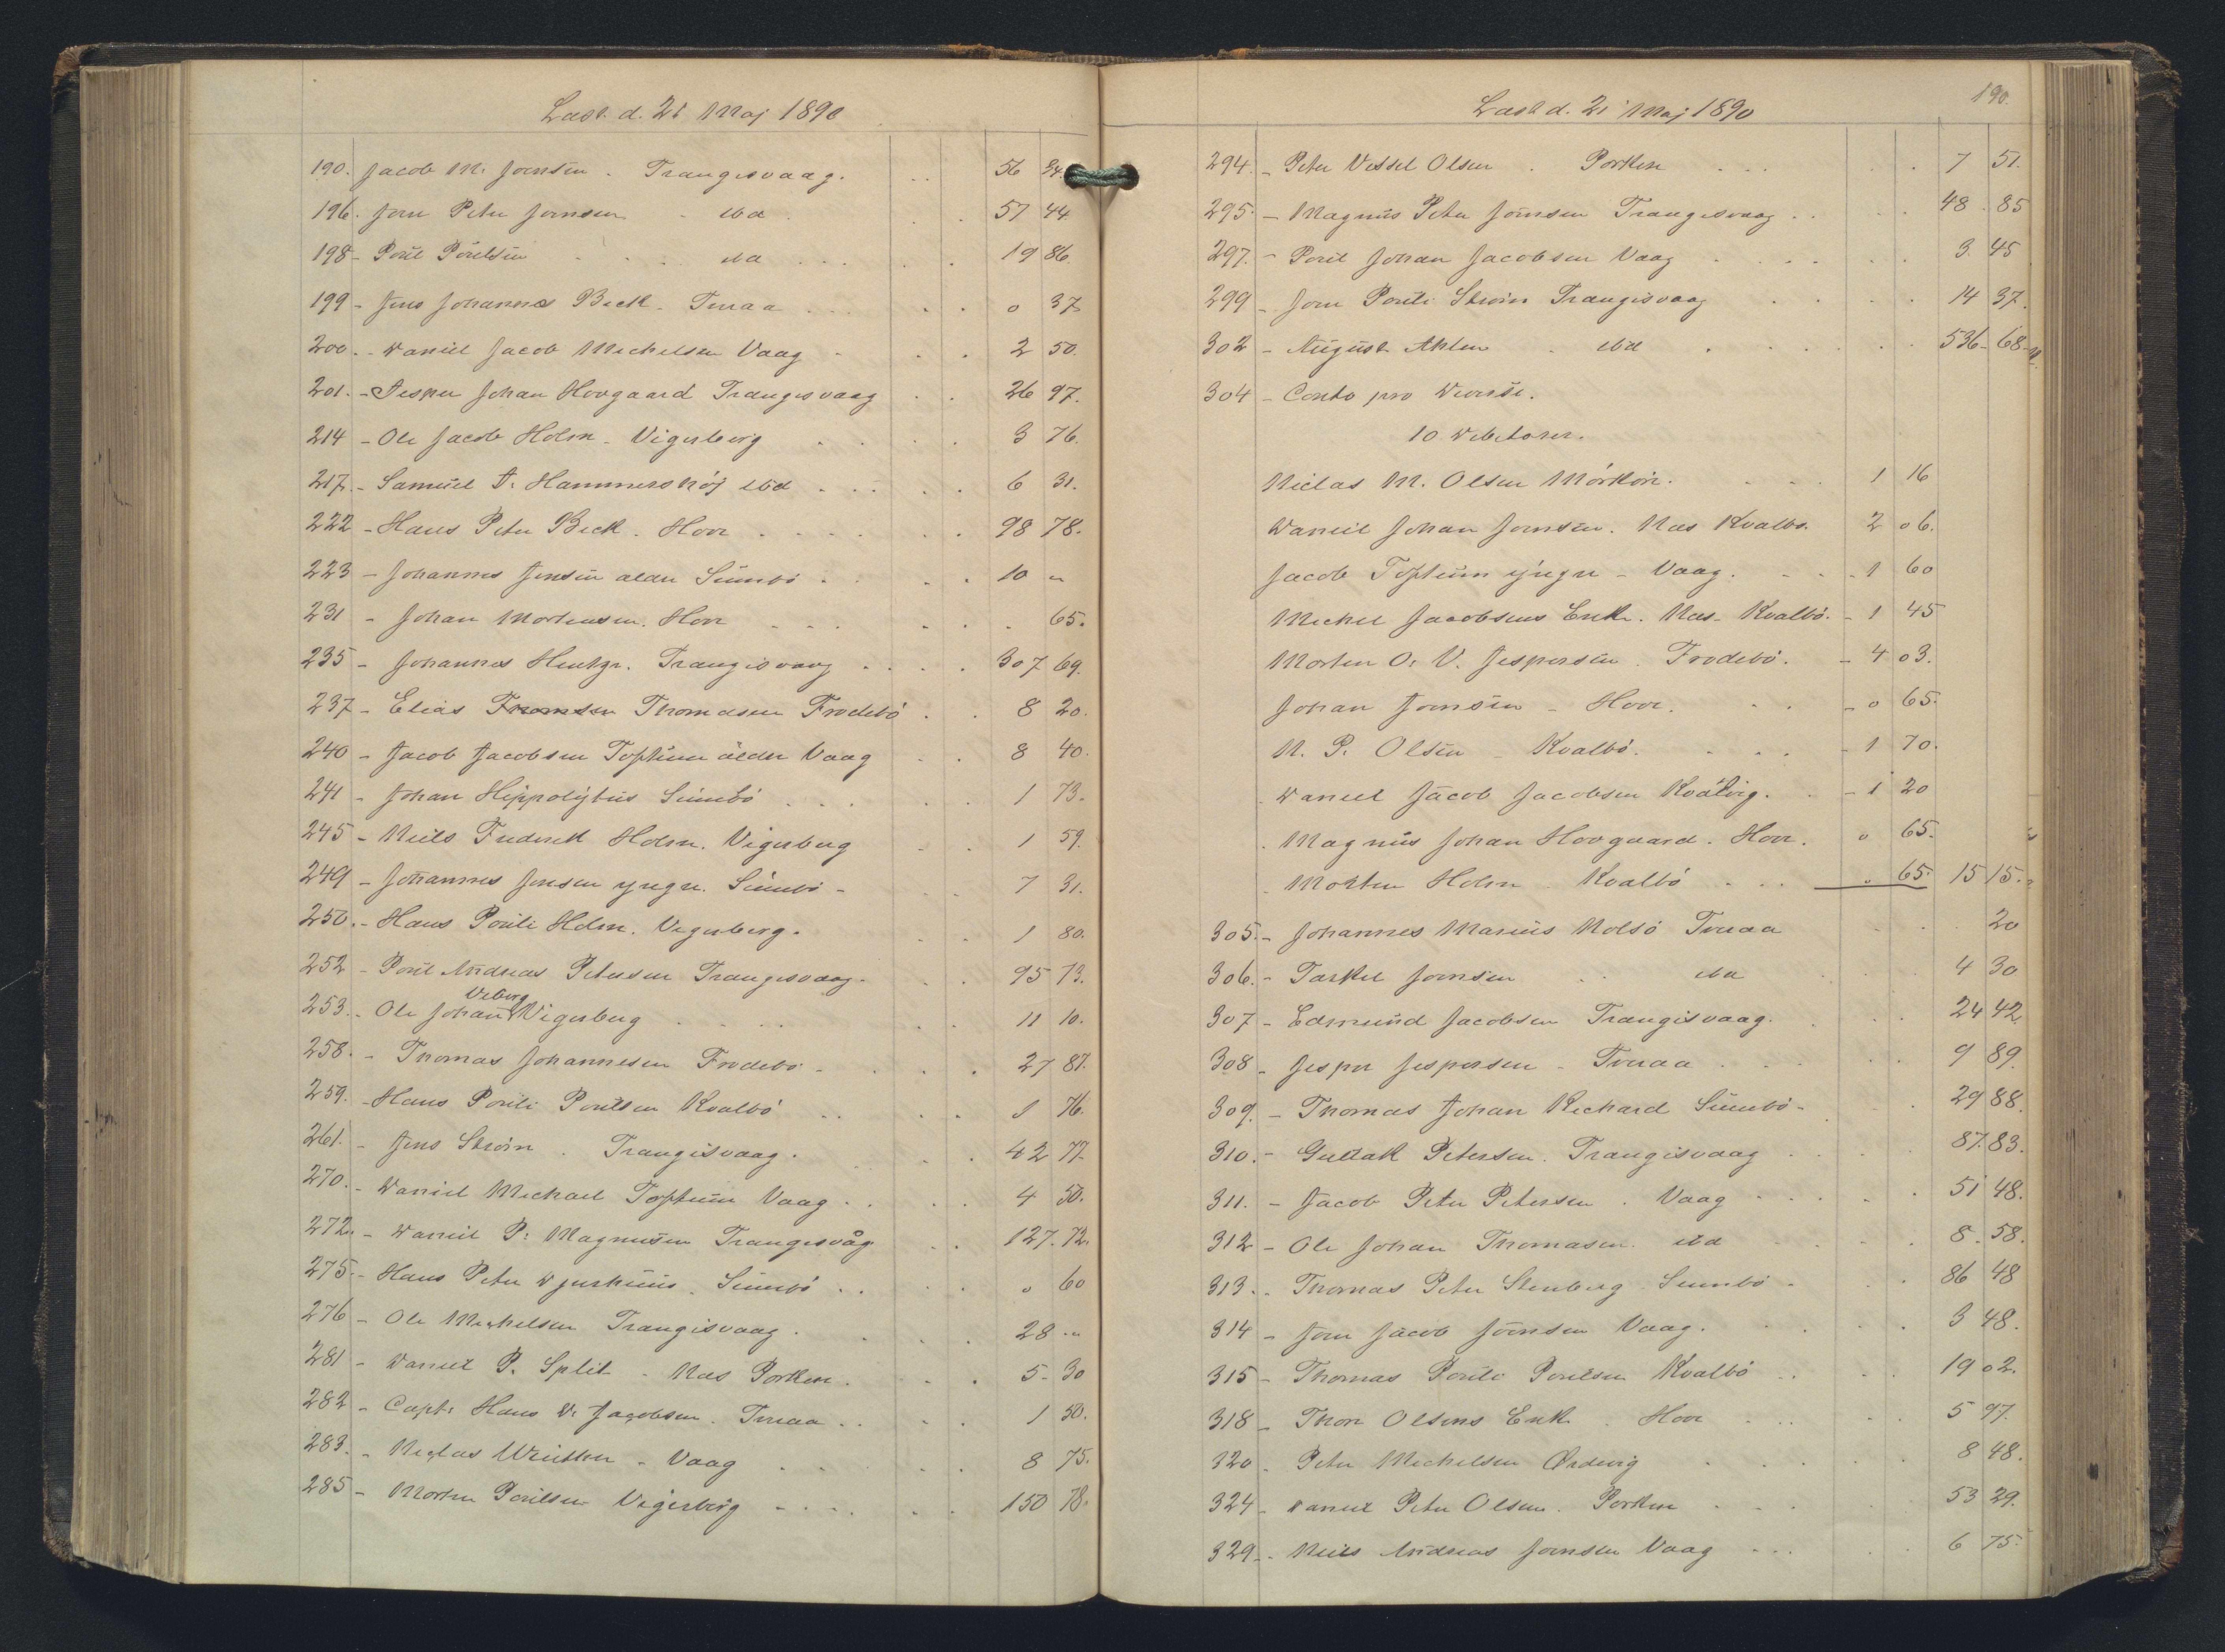 Læst d. 21 Maj 1890
190. Jacob M. Joensen. Trangisvaag. 56 34.
196. Joen Peter Joensen - ibd 57 44.
198- Poul Poulsen ibd 19 86.
199- Jens Johannes Beck. Tveraa 0 37
200. - Daniel Jacob Michelsen Vaag 2 50.
201. - Jesper Johan Hovgaard Trangisvaag 26 97.
214 - Ole Jacob Holm - Vigerberg 3 76.
217. - Samuel J. Hammershöj ibd 6 31.
222 - Hans Peter Beck. Hov 98 78.
223 - Johannes Jensen ælder Sumbö 10 "
231 - Johan Mortensen. Hov 65.
235 - Johannes Hentze. Trangisvaag 307 69.
237 - Elias Thomsen Thomasen Frodebö 8 20.
240 - Jacob Jacobsen Toftum ælder Vaag 8 40.
241 - Johan Hippolytus Sumbö 1 73.
245 - Niels Frederik Holm. Vigerberg 1 59.
249 - Johannes Jensen yngre. Sumbö - 7 31.
250. - Hans Pouli Holm. Vigerberg. 1 80.
252 - Poul Andreas Petersen Trangisvaag. 95 73.
Viberg
253. - Ole Johan Vigerberg 11 10.
258. - Thomas Johannesen Frodebö. 27 87.
259. - Hans Pouli Poulsen Kvalbö 1 76.
261. - Jens Ström. Trangisvaag. 42 77.
270. - Daniel Michael Toftum Vaag. 4 50.
272. - Daniel P. Magnusen Trangisvåg 127. 72.
275. - Hans Peter Djurhuus. Sumbö 0 60
276 - Ole Michelsen Trangisvaag. 28 "
281 - Daniel P. Split - Næs Porkeri. 5 - 30
282 - Capt. Hans D. Jacobsen. Tveraa 1 50.
283. - Niclas Winther - Vaag 8 75.
285 - Morten Poulsen Vigerberg 150 78.
190.
Læst d. 21 Maj 1890
294. - Peter Vessel Olsen. Porkeri 7 51.
295. - Magnus Peter Joensen Trangisvaag 48. 85
297. - Poul Johan Jacobsen Vaag 3. 45
299 - Joen Pouli Ström Trangisvaag 14 37.
302 - August Ahlen ibd 536 - 68
304 - Conto pro Diverse.
10 Debitorer.
Niclas M. Olsen Mörköre. 1 16
Daniel Johan Joensen. Næs Kvalbö. 2 06.
Jacob Toftum yngre - Vaag. 1 60
Michel Jacobsens Enke. Næs - Kvalbö. 1 45
Morten O. V. Jespersen. Frodebö. 4 03.
Johan Joensen - Hov. 0 65.
N. P. Olsen - Kvalbö. 1 70.
Daniel Jacob Jacobsen Kvalvig. 1 20
Magnus Johan Hovgaard. Hov. 0 65.
Morten Holm. Kvalbö " 65. 15 15.
305. - Johannes Marius Nolsö Tveraa 20
306. - Tarkel Joensen ibd 4 30
307 - Edmund Jacobsen Trangisvaag. 24 42
308 - Jesper Jespersen - Tveraa 9 89.
309. - Thomas Johan Richard Sumbö - 29 88.
310. - Gullak Petersen. Trangisvaag 87. 83.
311. - Jacob Peter Petersen. Vaag 51 48.
312 - Ole Johan Thomasen. ibd 8. 58.
313. - Thomas Peter Stenberg Sumbö 86 48
314 - Joen Jacob Joensen Vaag. 3 48.
315 - Thomas Pouli Poulsen Kvalbö 19 02.
318 - Thom Olsens Enke. Hov 5 97.
320 - Peter Michelsen Ördevig 8 48.
324 - Daniel Peter Olsen. Porkeri 53 29.
329 - Niels Andreas Joensen Vaag 6 75.